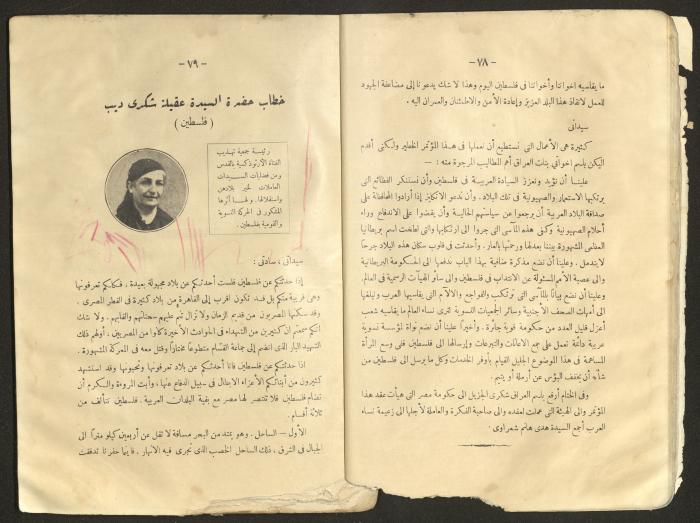 — ٧٨ —
ما يقاسيه اخواننا وأخواتنا فى فلسطين اليوم وهذا لا شك يدعونا إلى مضاعفة الجهود
للعمل لانقاذ هذا البلد العزيز وإعادة الأمن والاطمئنان والعمران اليه .
سيداتى
كثيرة هى الأعمال التى نستطيع أن نعملها فى هذا المؤتمر الخطير ولكنى أقدم
اليكن باسم اخواتى بنات العراق أهم المطاليب المرجوة منه : —
علينا أن نؤيد ونعزز السيادة العربية فى فلسطين وأن نستنكر الفظائع التى
يرتكبها الاستعمار والصهيونية فى تلك البلاد . وأن ندعو الانكليز إذا أرادوا المحافظة على
صداقة البلاد العربية أن يرجعوا عن سياستهم الحالية وأن يقضوا على الاندفاع وراء
أحلام الصهيونية وكفى هذه المآسى التى جروا الى ارتكابها والتى لطخت اسم بريطانيا
العظمى المشهورة بيننا بعدلها ورحمتها بالعار . وأحدثت فى قلوب سكان هذه البلاد جرحا
لا يندمل . وعلينا أن نضع مذكرة ضافية بهذا الباب ندفعها الى الحكومة البريطانية
والى عصبة الأمم المسئولة عن الانتداب فى فلسطين والى سائر الهيئات الرسمية فى العالم
وعلينا أن نضع بيانا بالمآسى التى ترتكب والفواجع والآلام التى يقاسيها العرب ونبلغها
الى أمهات الصحف الأجنبية وسائر الجمعيات النسوية لترى نساء العالم ما يقاسيه شعب
أعزل قليل العدد من حكومة قوية جائرة . وأخيرا علينا أن نضع نواة لمؤسسة نسوية
عربية دائمة تعمل على جمع الاعانات والتبرعات وإرسالها الى فلسطين ففى وسع المرأة
المساهمة فى هذا الموضوع الجليل القيام بأوفر الخدمات وكل ما يرسل الى فلسطين من
شأنه أن يخفف البؤس عن أرملة أو يتيم .
وفى الختام أرفع باسم العراق شكرى الجزيل الى حكومة مصر التى هيأت عقد هذا
المؤتمر والى الهيئة التى عملت لعقده والى صاحبة الفكرة والعاملة لأجلها الى زعيمة نساء
العرب أجمع السيدة هدى هانم شعراوى .
— ٧٩ —
خطاب حضرة السيدة عقيلة شكرى ديب
( فلسطين )
رئيسة جمعية تهذيب
الفتاة الأرثوذكسية بالقدس
ومن فضليات السيدات
العاملات لخير بلادهن
واستقلالها . ولها أثرها
المشكور فى الحركة النسوية
والقومية بفلسطين .
سيداتى ، سادتى :
إذا حدثتكم عن فلسطين فلست أحدثكم عن بلاد مجهولة بعيدة ، فكلكم تعرفونها
وهى قريبة منكم بل قد تكون أقرب إلى القاهرة من بلاد كثيرة فى القطر المصرى .
وقد سكنها المصريون من قديم الزمان ولا تزال تنم عليهم سحناتهم وألقابهم . ولا شك
انكم سمعتم أن كثيرين من الشهداء فى الحوادث الأخيرة كانوا من المصريين ، أولهم ذلك
الشهيد البار الذى انضم إلى جماعة القسام متطوعا مختارا وقتل معه فى المعركة المشهورة .
اذا حدثتكم عن فلسطين فانا أحدثكم عن بلاد تعرفونها وتحبونها وقد استشهد
كثيرون من أبنائكم الأعزاء الابطال فى سبيل الدفاع عنها ، وأبت المروءة والكرم أن
تضام فلسطين فلا تنتصر لها مصر مع بقية البلدان العربية . فلسطين تتألف من
ثلاثة أقسام .
الأول — الساحل . وهو يمتد من البحر مسافة لا تقل عن أربعين كيلو مترا الى
الجبال فى الشرق ، ذلك الساحل الخصب الذى تجرى فيه الأنهار . فاينما حفرنا تدفقت